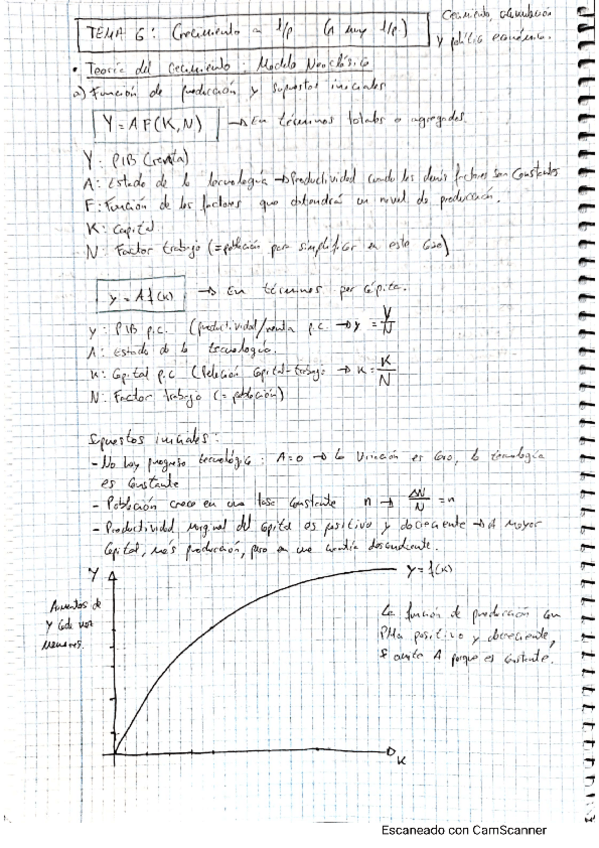 TEMA 6: Crecimiento a l/p (a muy l/p)
Crecimiento, distribución
y política económica.
• Teoría del Crecimiento: Modelo Neoclásico
a) Función de producción y supuestos iniciales
Y = A F(K, N) → En términos totales o agregados.
Y: PIB (renta)
A: Estado de la tecnología → Productividad cuando los demás factores son constantes
F: Función de los factores que obtendrá un nivel de producción.
K: Capital
N: Factor trabajo (= población para simplificar en este caso)
y = A f(k) → En términos per cápita.
y: PIB p.c. (productividad/renta p.c. → y = Y/N
A: Estado de la tecnología.
K: Capital p.c. (Relación capital-trabajo → k = K/N
N: Factor trabajo (= población)
Supuestos iniciales:
- No hay progreso tecnológico: A=0 → la variación es cero, la tecnología
es constante
- Población crece en una tasa constante n → ΔN/N = n
- Productividad marginal del capital es positiva y decreciente → A mayor
capital, más producción, pero en una cuantía descendiente.
Y
y = f(k)
Aumentos de
y cada vez
menores.
La función de producción con
PMa positiva y decreciente,
se omite A porque es constante.
K
Escaneado con CamScanner